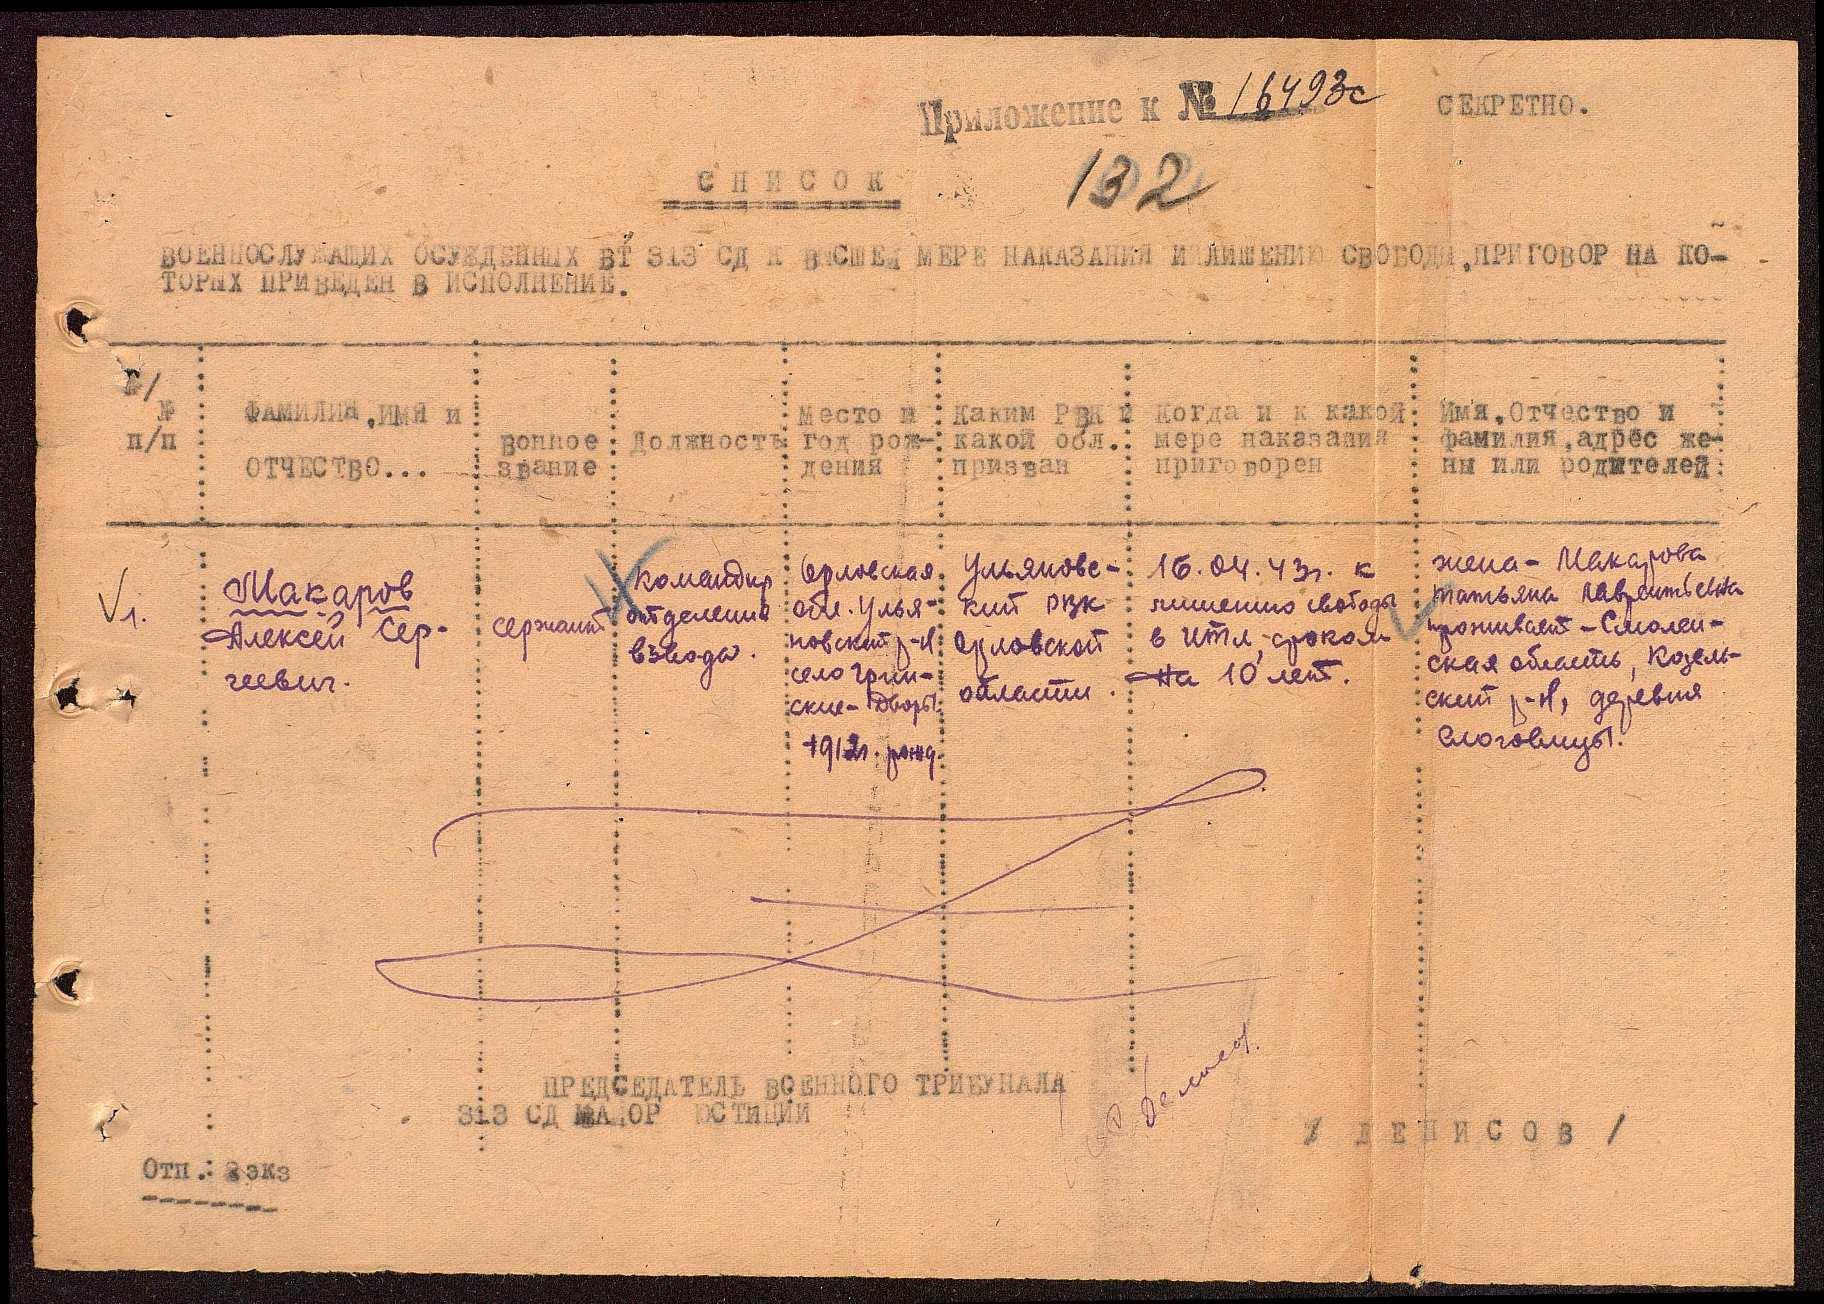 Приложение к № 16493с
СЕКРЕТНО.
132
СПИСОК
ВОЕННОСЛУЖАЩИХ ОСУЖДЕННЫХ ВТ 313 СД К ВЫСШЕЙ МЕРЕ НАКАЗАНИЯ И ЛИШЕНИЮ СВОБОДЫ, ПРИГОВОР НА КО-
ТОРЫХ ПРИВЕДЕН В ИСПОЛНЕНИЕ.
№
п/п
ФАМИЛИЯ, ИМЯ и
ОТЧЕСТВО...
военное
звание
Должность
Место и
год рож-
дения
Каким РВК и
какой обл.
призван
Когда и к какой
мере наказания
приговорен
Имя, Отчество и
фамилия, адрес же-
ны или родителей
1.
Макаров
Алексей Сер-
геевич.
сержант
командир
отделения
взвода.
Орловская
обл. Улья-
новский р-н
село
ские-Дворы.
1912г. рожд.
Ульяновс-
кий РВК
Орловской
области.
16.04.43г. к
лишению свободы
в ИТЛ, сроком
на 10 лет.
жена - Макарова
Татьяна Лаврентьевна
проживает - Смолен-
ская область, Козель-
ский р-н, деревня
Слаговищы.
ПРЕДСЕДАТЕЛЬ ВОЕННОГО ТРИБУНАЛА
313 СД МАЙОР ЮСТИЦИИ
/ ДЕНИСОВ /
Отп. 2экз